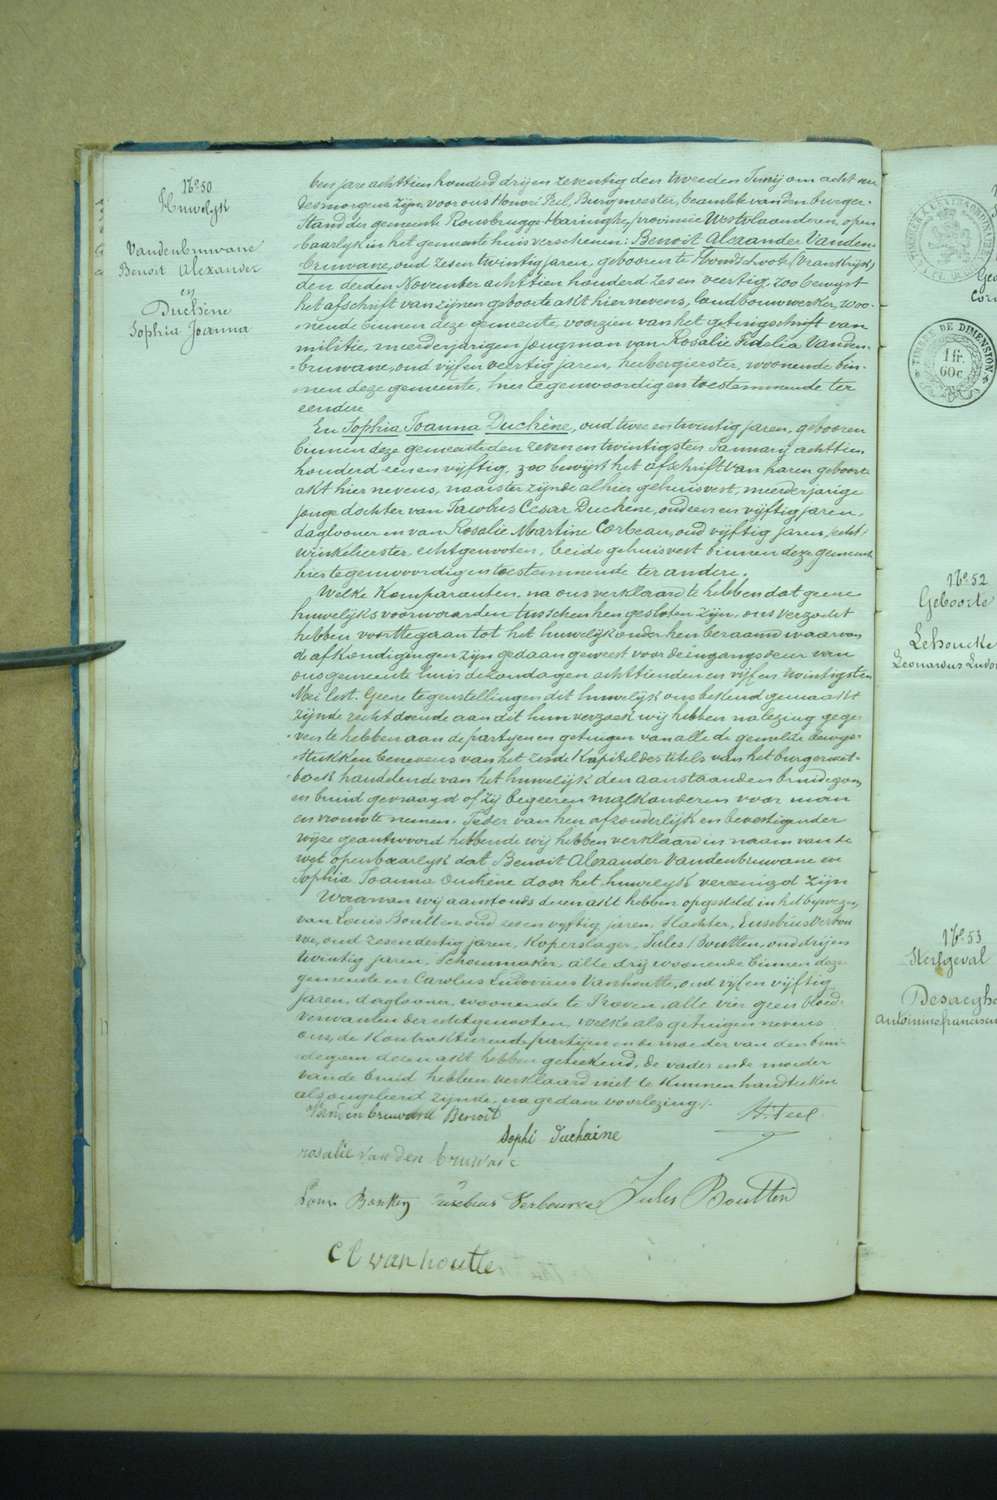 N° 50
Huwelijk
Vandenbruwane
Benoit Alexander
en
Duchène
Sophia Joanna
den jare achttien honderd drij en zeventig den tweeden Junij om acht uren
des morgens zijn voor ons Henri Peel, Burgmeester, beambte van den burger-
stand der gemeente Rousbrugge Haringhe, provincie Westvlaanderen, open-
baarlijk in het gemeentehuis verschenen: Benoit Alexander Vanden-
bruwane, oud zes en twintig jaren, geboren te Hondschoote (Vrankrijk)
den derden November achttien honderd zes en veertig, zoo bewijst
het afschrift van zijnen geboorte akt hiernevens, landbouwwerker, woo-
nende binnen deze gemeente, voorzien van het getuigschrift van
militie, meerderjarigen jongman van Rosalie Fidelia Vanden-
bruwane, oud vijf en veertig jaren, herbergierster, woonende bin-
nen deze gemeente, hier tegenwoordig en toestemmende ter
eendere
En Sophia Joanna Duchène, oud twee en twintig jaren, geboren
binnen deze gemeente den zeven en twintigsten Januarij achttien
honderd een en vijftig, zoo bewijst het afschrift van haren geboorte
akt hier nevens, naaister zijnde alhier gehuisvest, meerderjarige
jonge dochter van Jacobus Cesar Duchene, oud een en vijftig jaren,
daglooner en van Rosalie Martine Corbeau, oud vijftig jaren,
winkelierster, echtgenooten, beide gehuisvest binnen deze gemeente
hier tegenwoordig en toestemmende ter andere.
Welke Komparanten, na ons verklaard te hebben dat geene
huwelijksvoorwaarden tusschen hen gesloten zijn, ons verzocht
hebben voort te gaan tot het huwelijk onder hen beraamd waarvan
de afkondigingen zijn gedaan geweest voor de ingangsdeur van
ons gemeente huis de zondagen achttienden en vijf en twintigsten
Mei lest. Geene tegenstellingen dit huwelijk ons bekend gemaakt
zijnde recht doende aan dit hun verzoek wij hebben na lezing gege-
ven te hebben aan de partijen en getuigen van alle de gemelde bewijs-
stukken benevens van het zesde Kapittel des titels van het burgerwet-
boek handelende van het huwelijk den aanstaanden bruidegom
en bruid gevraagd of zij begeeren malkanderen voor man
en vrouw te nemen. Ieder van hen afzonderlijk en bevestigender
wijze geantwoord hebbende wij hebben verklaard in naam van de
wet openbaarlijk dat Benoit Alexander Vandenbruwane en
Sophia Joanna Duchène door het huwelijk vereenigd zijn
Waarvan wij aanstonds dezen akt hebben opgesteld in het bijwezen
van Louis Boutten oud een en vijftig jaren, slachter, Eusebius Verbou-
we, oud zes en dertig jaren, koperslager, Jules Boutten, oud drij en
twintig jaren, schoenmaker, alle drij woonende binnen deze
gemeente en Carolus Ludovicus Vanhoutte, oud vijf en vijftig
jaren, daglooner, woonende te Proven, alle vier geen bloed-
verwanten der echtgenooten, welke als getuigen nevens
ons, de Kontrakteerende partijen en de moeder van den brui-
degom dezen akt hebben geteekend, de vader en de moeder
van de bruid hebben verklaard niet te kunnen handteeken
als ongeleerd zijnde, na gedane voorlezing.
Benoit
H. Peel
Sophi Duchaine
rosalie van den bruwane
Louis Boutten Eusebius Verbouwe Jules Boutten
C L van houtte
TIMBRE DE DIMENSION
1 fr.
60 c.
N° 52
Geboorte
Lehoucke
N° 53
Sterfgeval